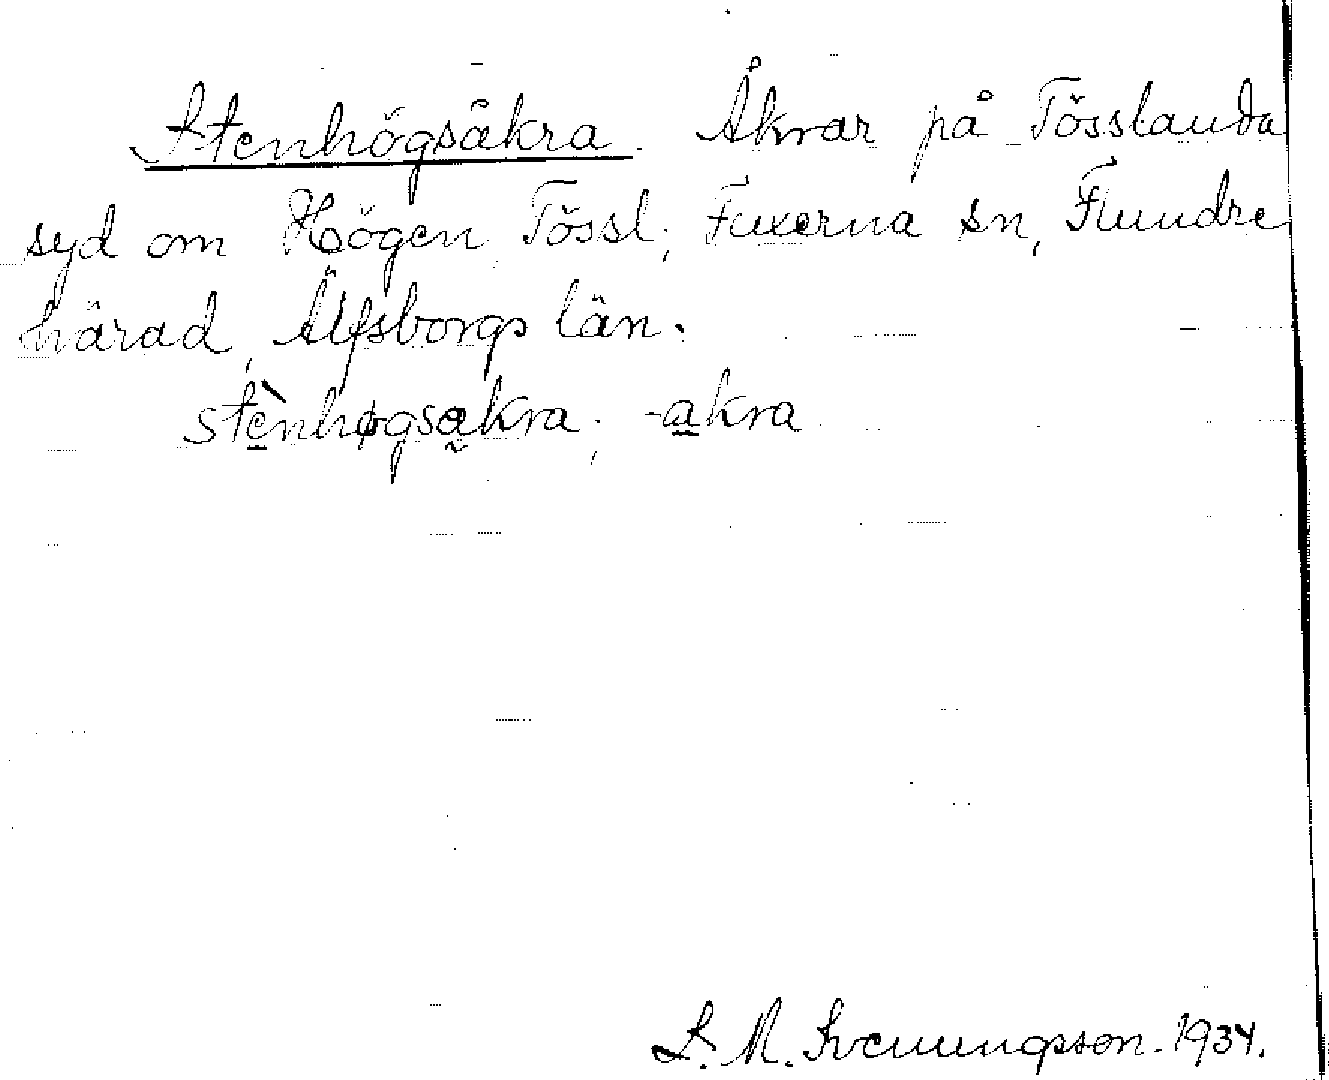 Stenhögsåkra. Åkrar på Tösslanda
syd om Högen Tössl; Fuxerna sn, Flundre
härad, Älfsborgs län.
stènhøgsa̰kra; -a̱kra
S. M. Svenungsson. 1934.